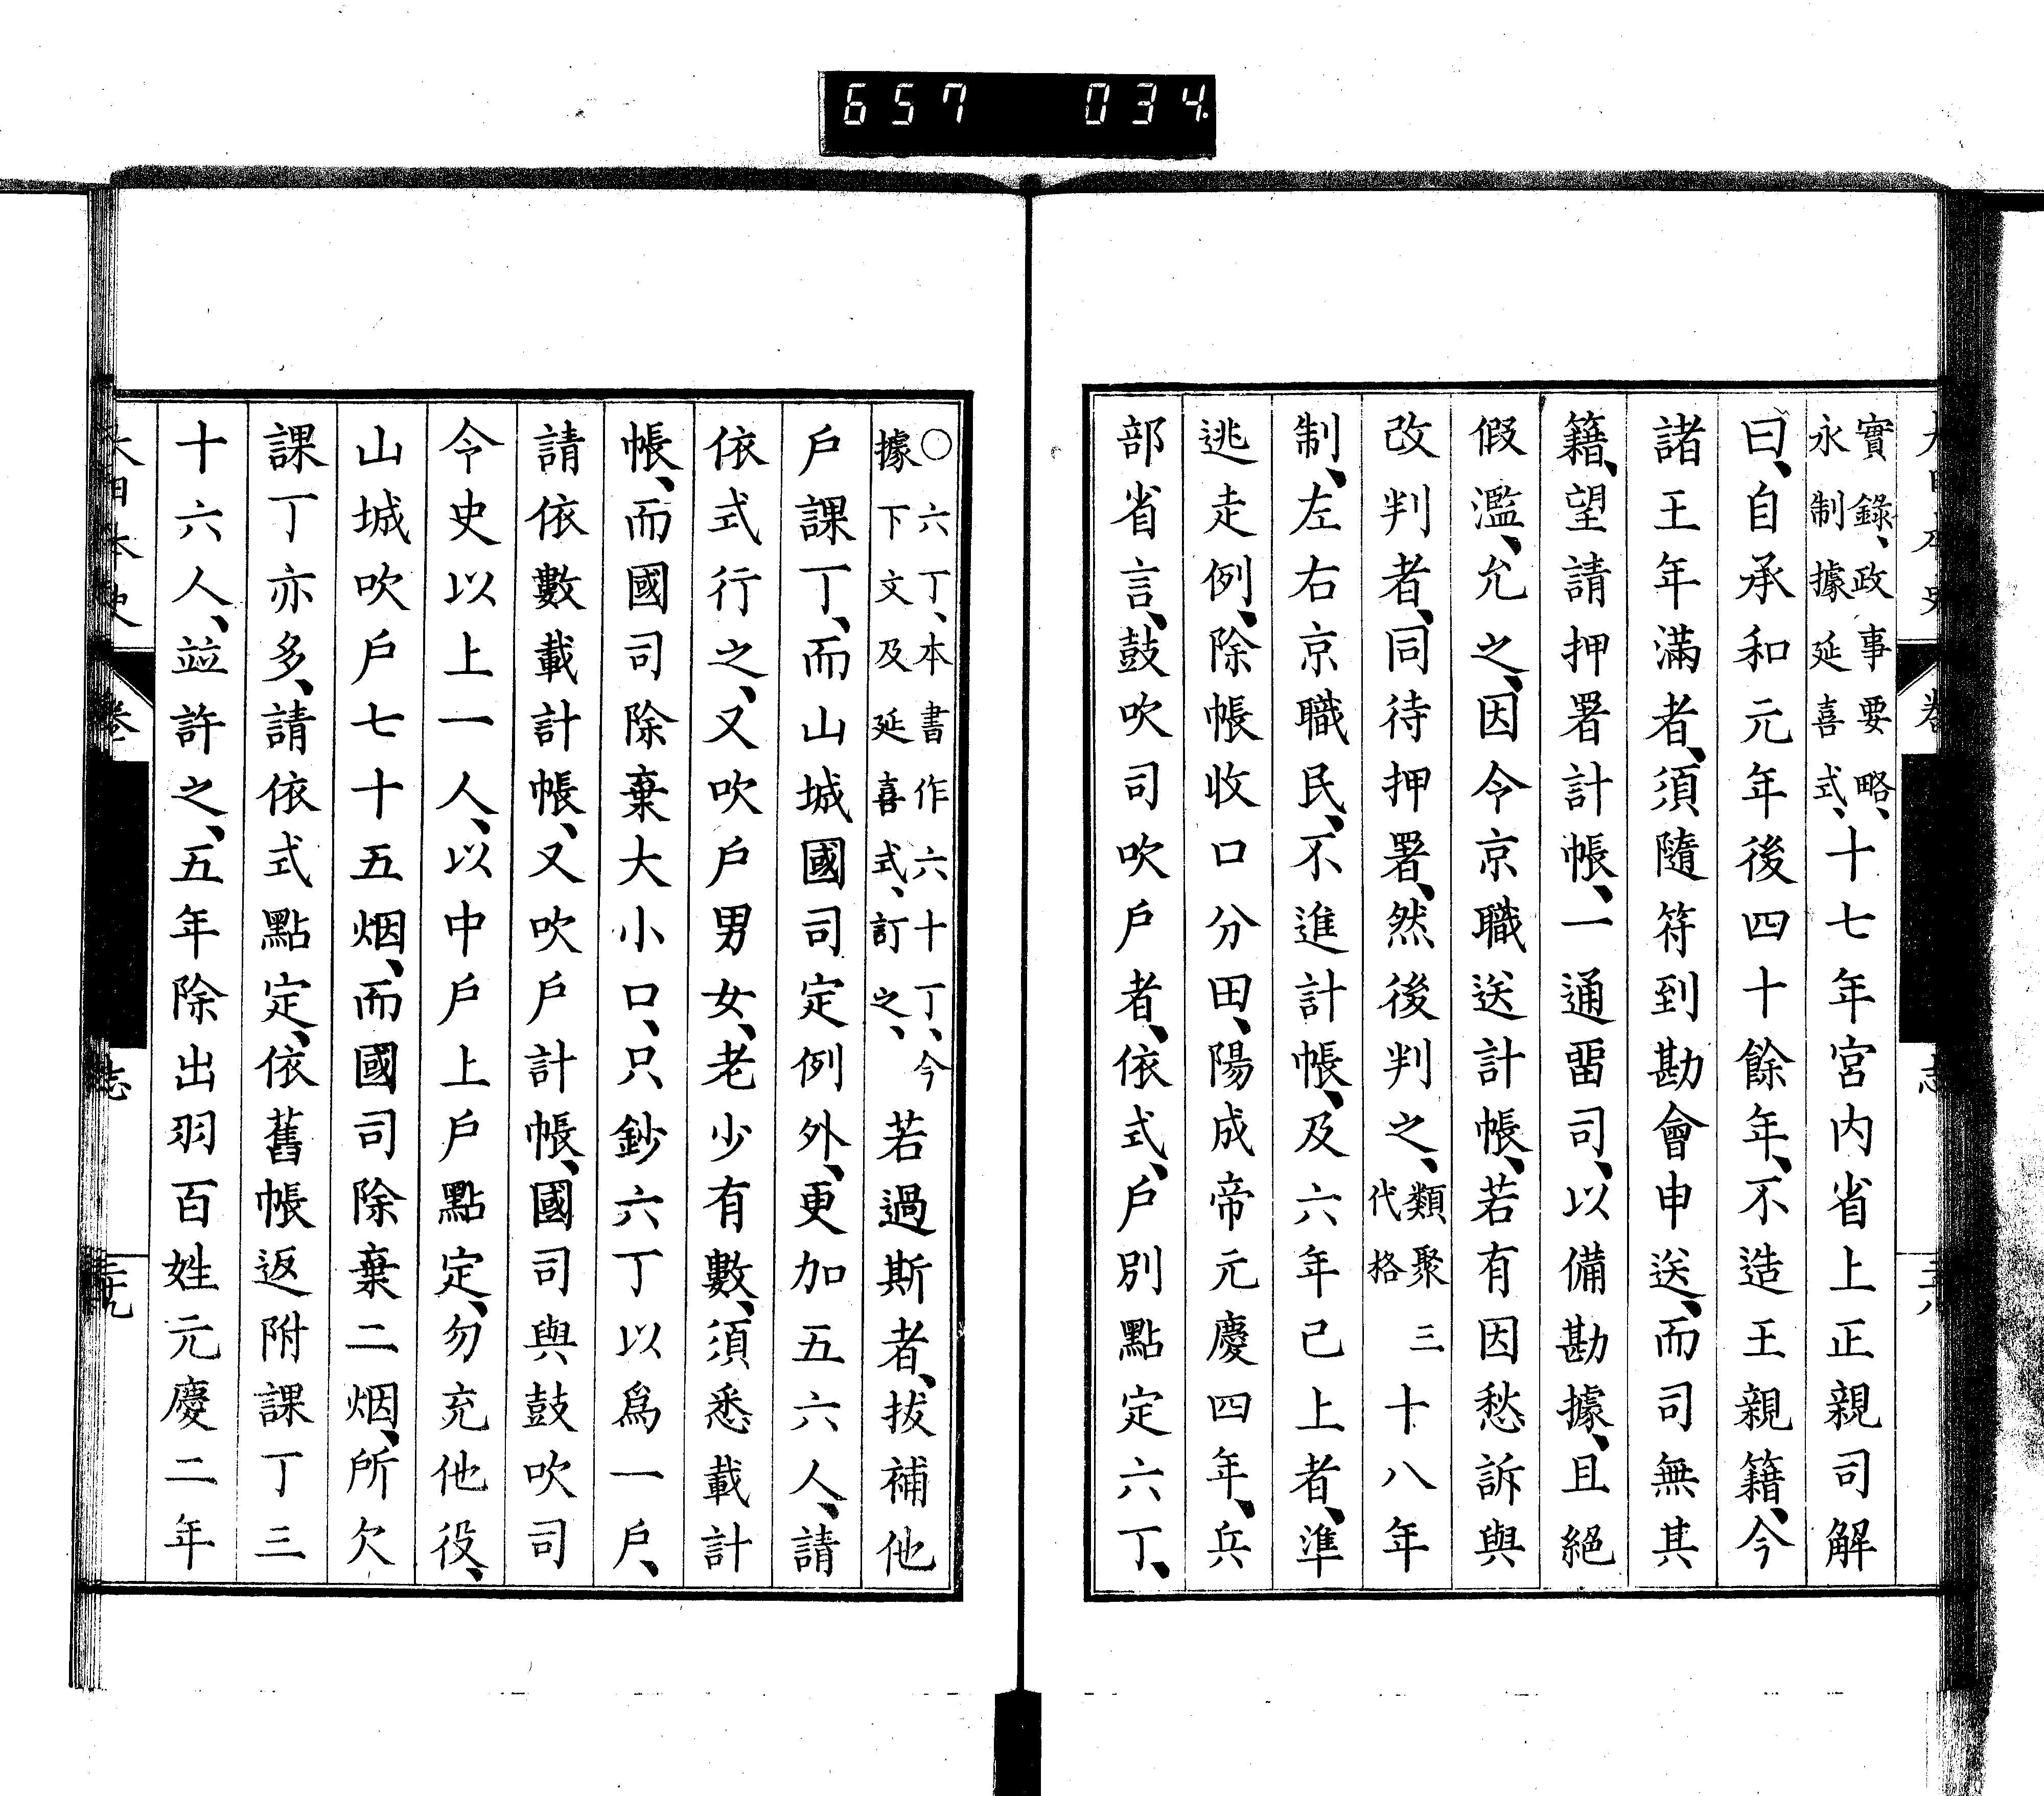 657 034
實錄、政事要略、
永制據延喜式、十七年宮内省上正親司解
曰、自承和元年後四十餘年、不造王親籍、今
諸王年滿者、須隨符到勘會申送、而司無其
籍、望請押署計帳、一通畱司、以備勘據、且絕
假濫、允之、因令京職送計帳、若有因愁訴與
改判者、同待押署、然後判之、類聚三
代格十八年
制、左右京職民、不進計帳、及六年已上者、準
逃走例、除帳收口分田、陽成帝元慶四年、兵
部省言、鼓吹司吹戶者、依式、戶別點定六丁、
○六丁、本書作六十丁、今
據下文及延喜式、訂之、若過斯者、拔補他
戶課丁、而山城國司定例外、更加五六人、請
依式行之、又吹戶男女、老少有數、須悉載計
帳、而國司除棄大小口、只鈔六丁以爲一戶、
請依數載計帳、又吹戶計帳、國司與鼓吹司
令史以上一人、以中戶上戶點定、勿充他役、
山城吹戶七十五烟、而國司除棄二烟、所欠
課丁亦多、請依式點定、依舊帳返附課丁三
十六人、竝許之、五年除出羽百姓元慶二年
大日本史 卷 志 三十九